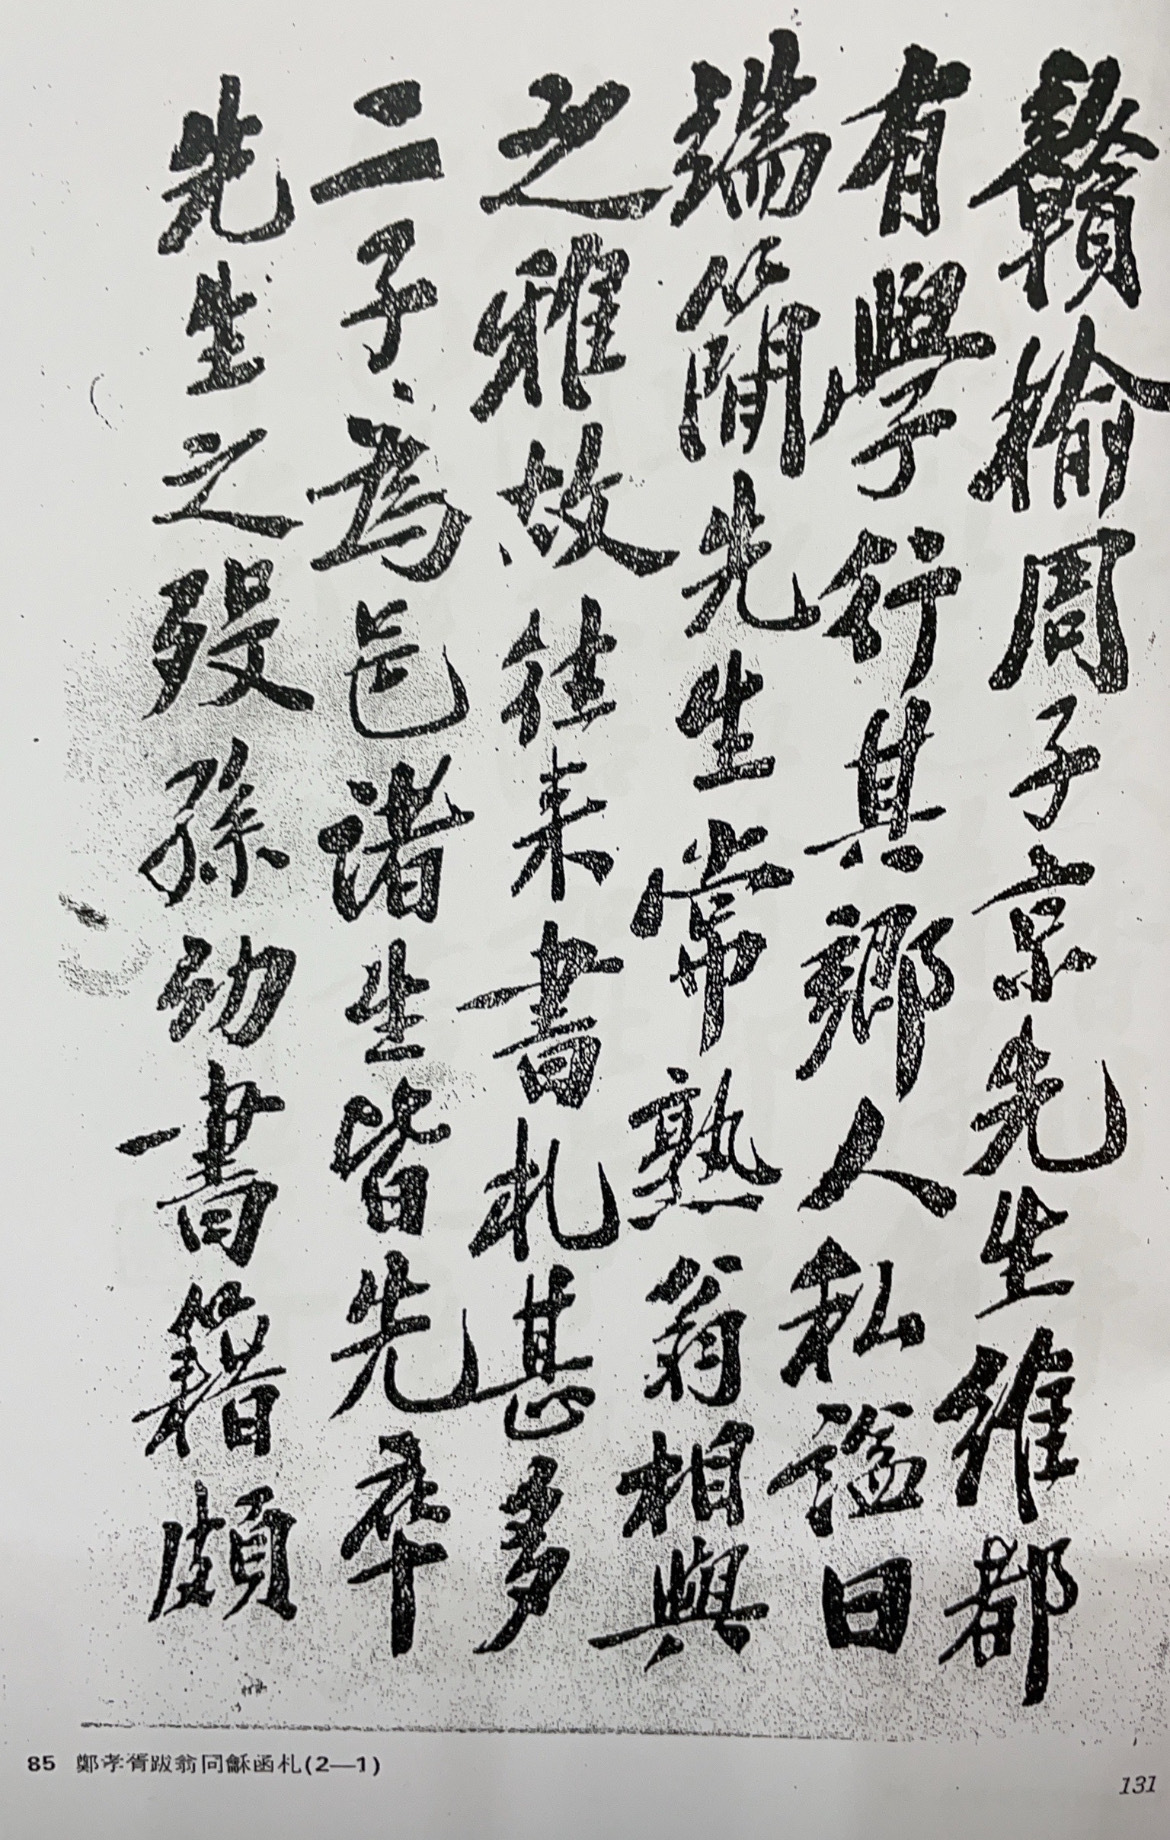 贛榆周子京先生維都
有學行其鄉人私謚曰
端簡先生常熟翁相與
之雅故往來書札甚多
二子為邑諸生皆先卒
先生之歿孫幼書籍頗
85 鄭孝胥跋翁同龢函札(2—1)
131